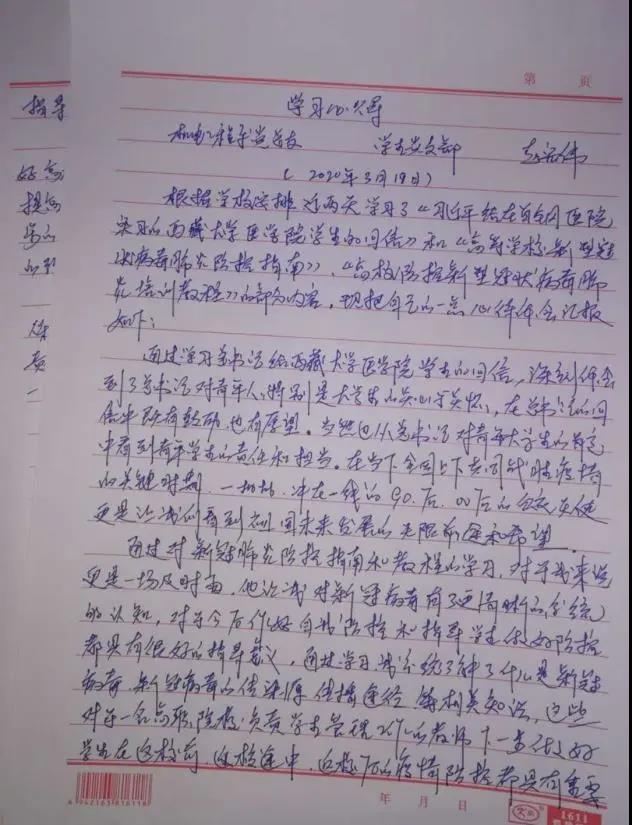 第 页
学习心得
机电工程系党总支 学生党支部
(2020年3月19日)
根据学校安排,近两天学习了《习近平给在首钢医院
实习的西藏大学医学院学生的回信》和《高等学校新型冠
状病毒肺炎防控指南》、《高校防控新型冠状病毒肺
炎培训教程》的部分内容,现把自己的一点心得体会汇报
如下:
通过学习总书记给西藏大学医学院学生的回信,深刻体会
到了总书记对青年人,特别是大学生的关心与关怀,在总书记的回
信中既有鼓励,也有厚望。当然也从总书记对青年大学生的
中看到青年学生的责任和担当。在当下全国上下共同战时疫情
的关键时期,一批批冲在一线的90后、00后的白衣天使
更是让我们看到祖国未来发展的无限前途和希望。
通过对新冠肺炎防控指南和教程的学习,对于我来说
更是一场及时雨,他让我对新冠病毒有了更清晰的系统
的认知,对于今后作好自我防控和指导学生做好防控
都具有很好的指导意义,通过学习,我系统了解了什么是新冠
病毒,新冠病毒的传染源、传播途径等相关知识,这些
对于一名高职院校负责学生管理工作的教师下一步做好
学生在返校前、返校途中、返校后的疫情防控都具有重要
指导
年 月 日
6942163616116
1611